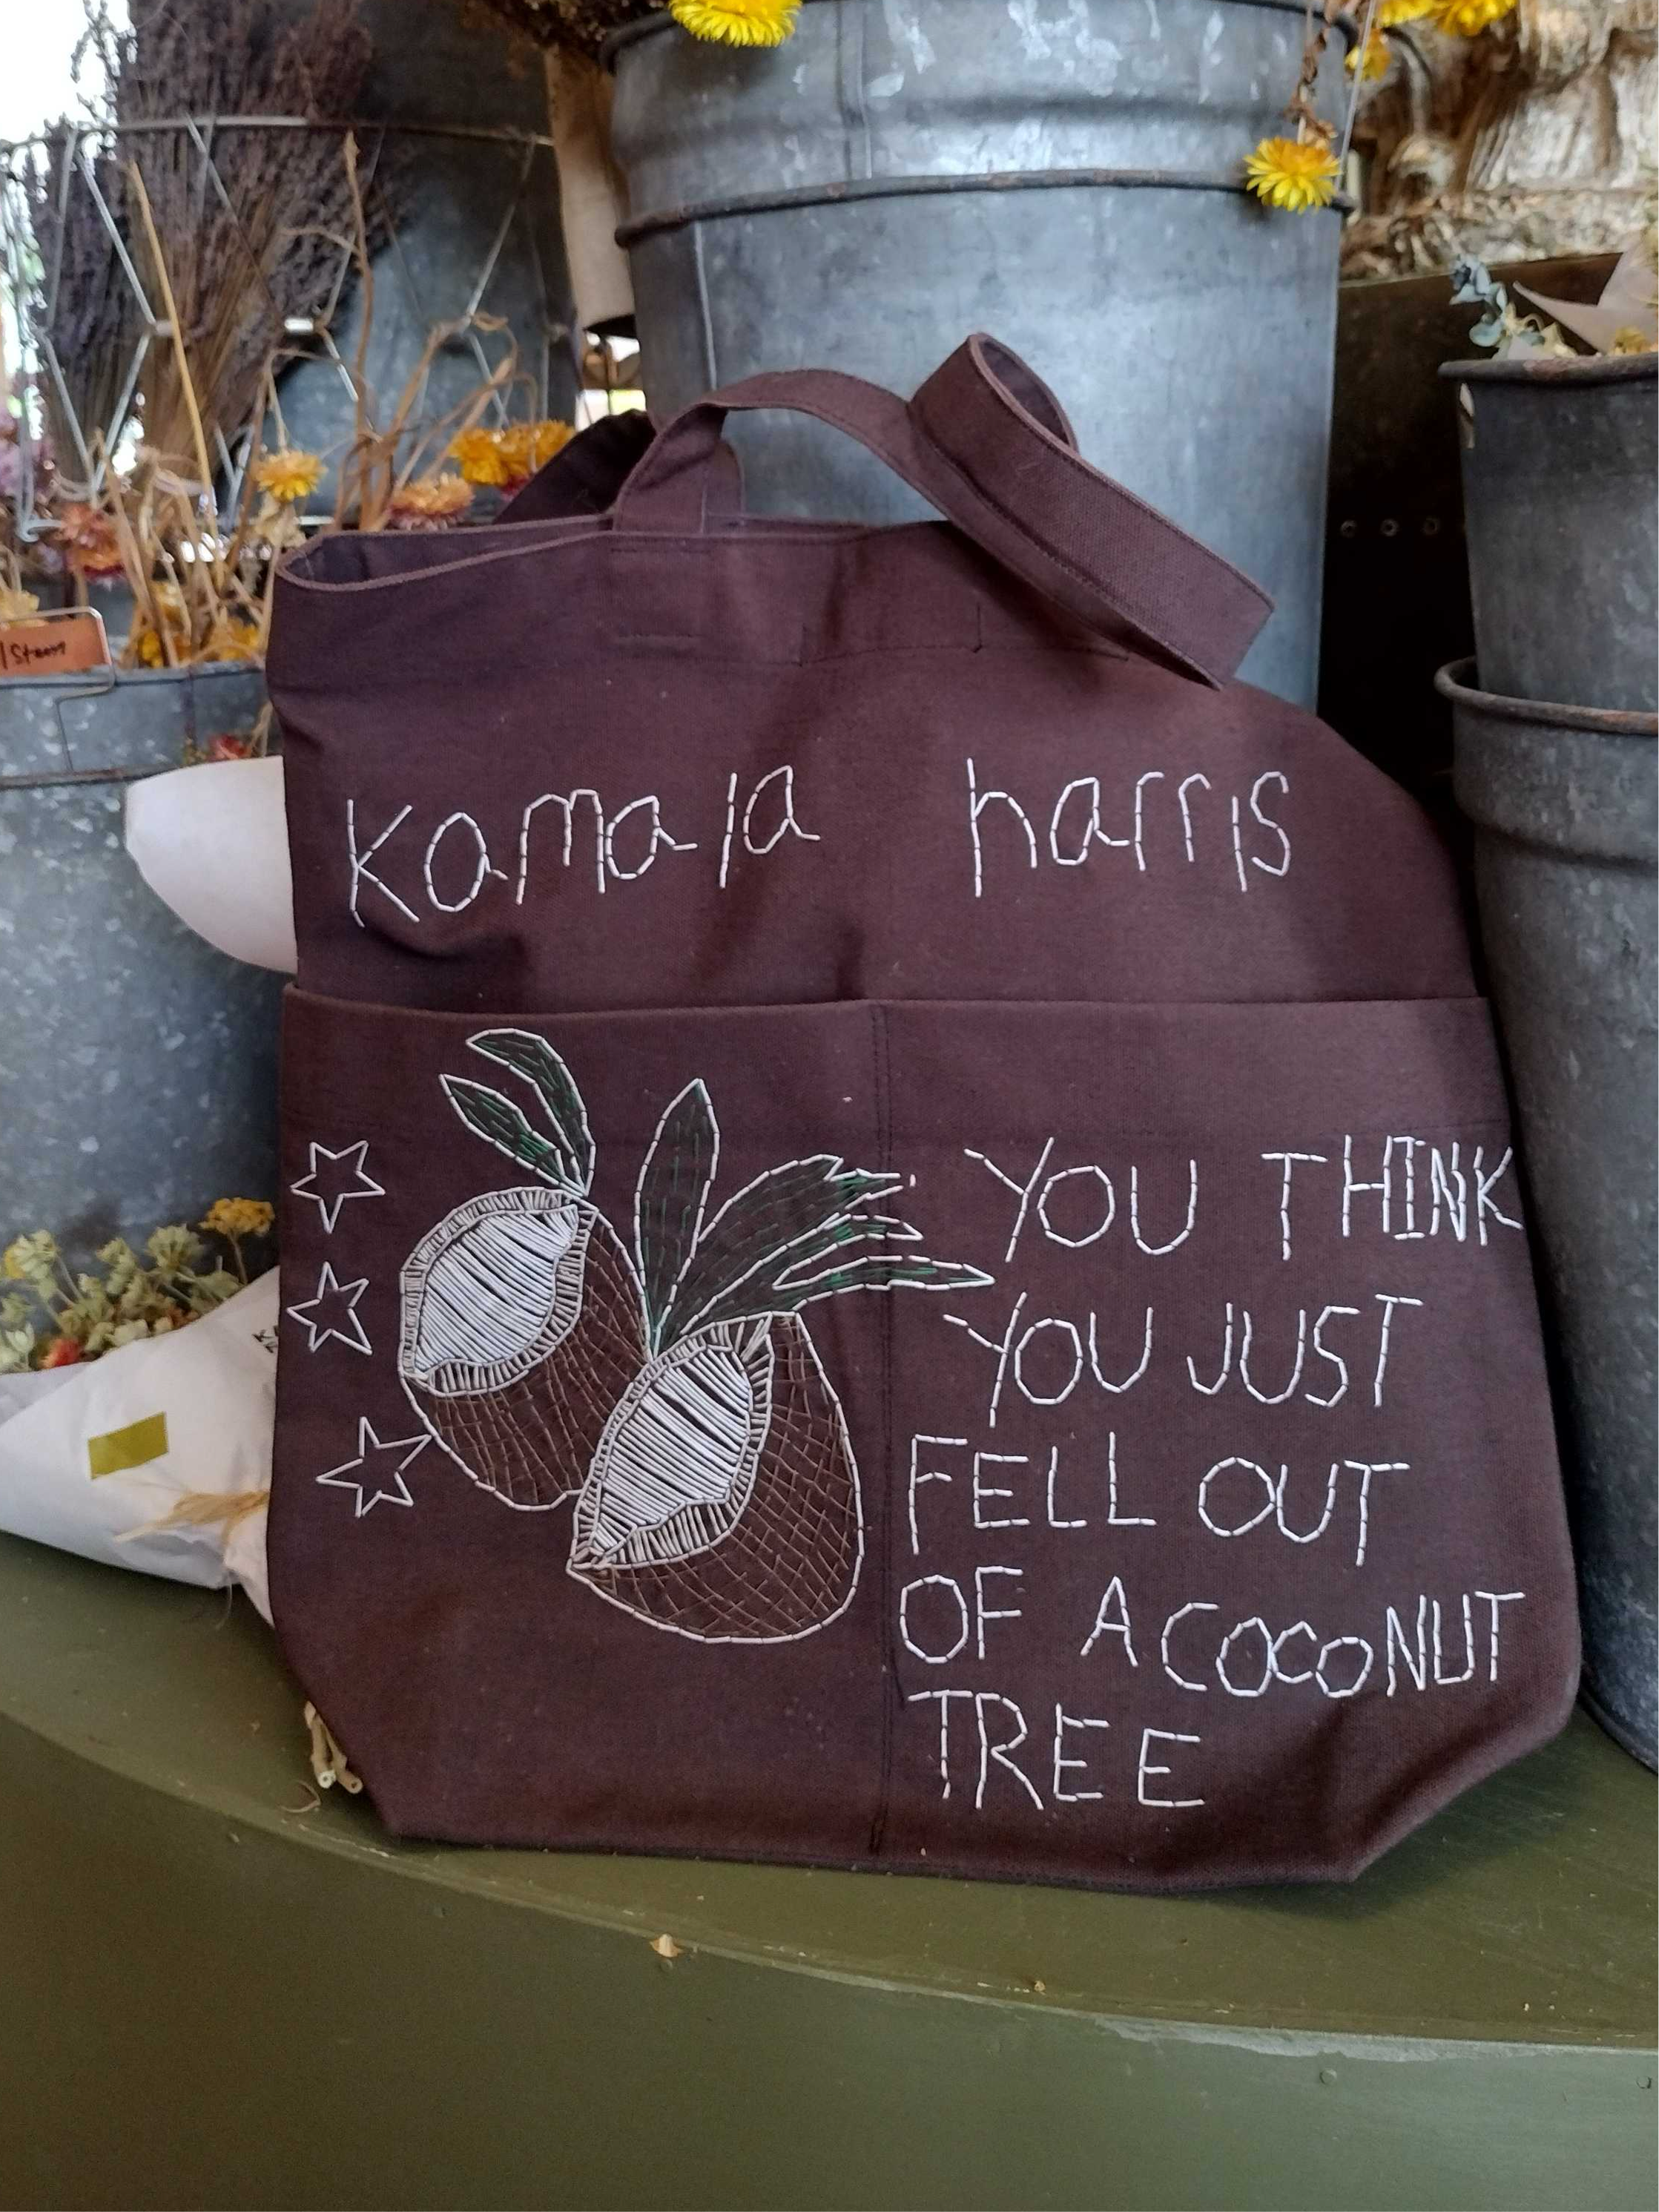 /Stem
kamala harris
YOU THINK
YOU JUST
FELL OUT
OF A COCONUT
TREE